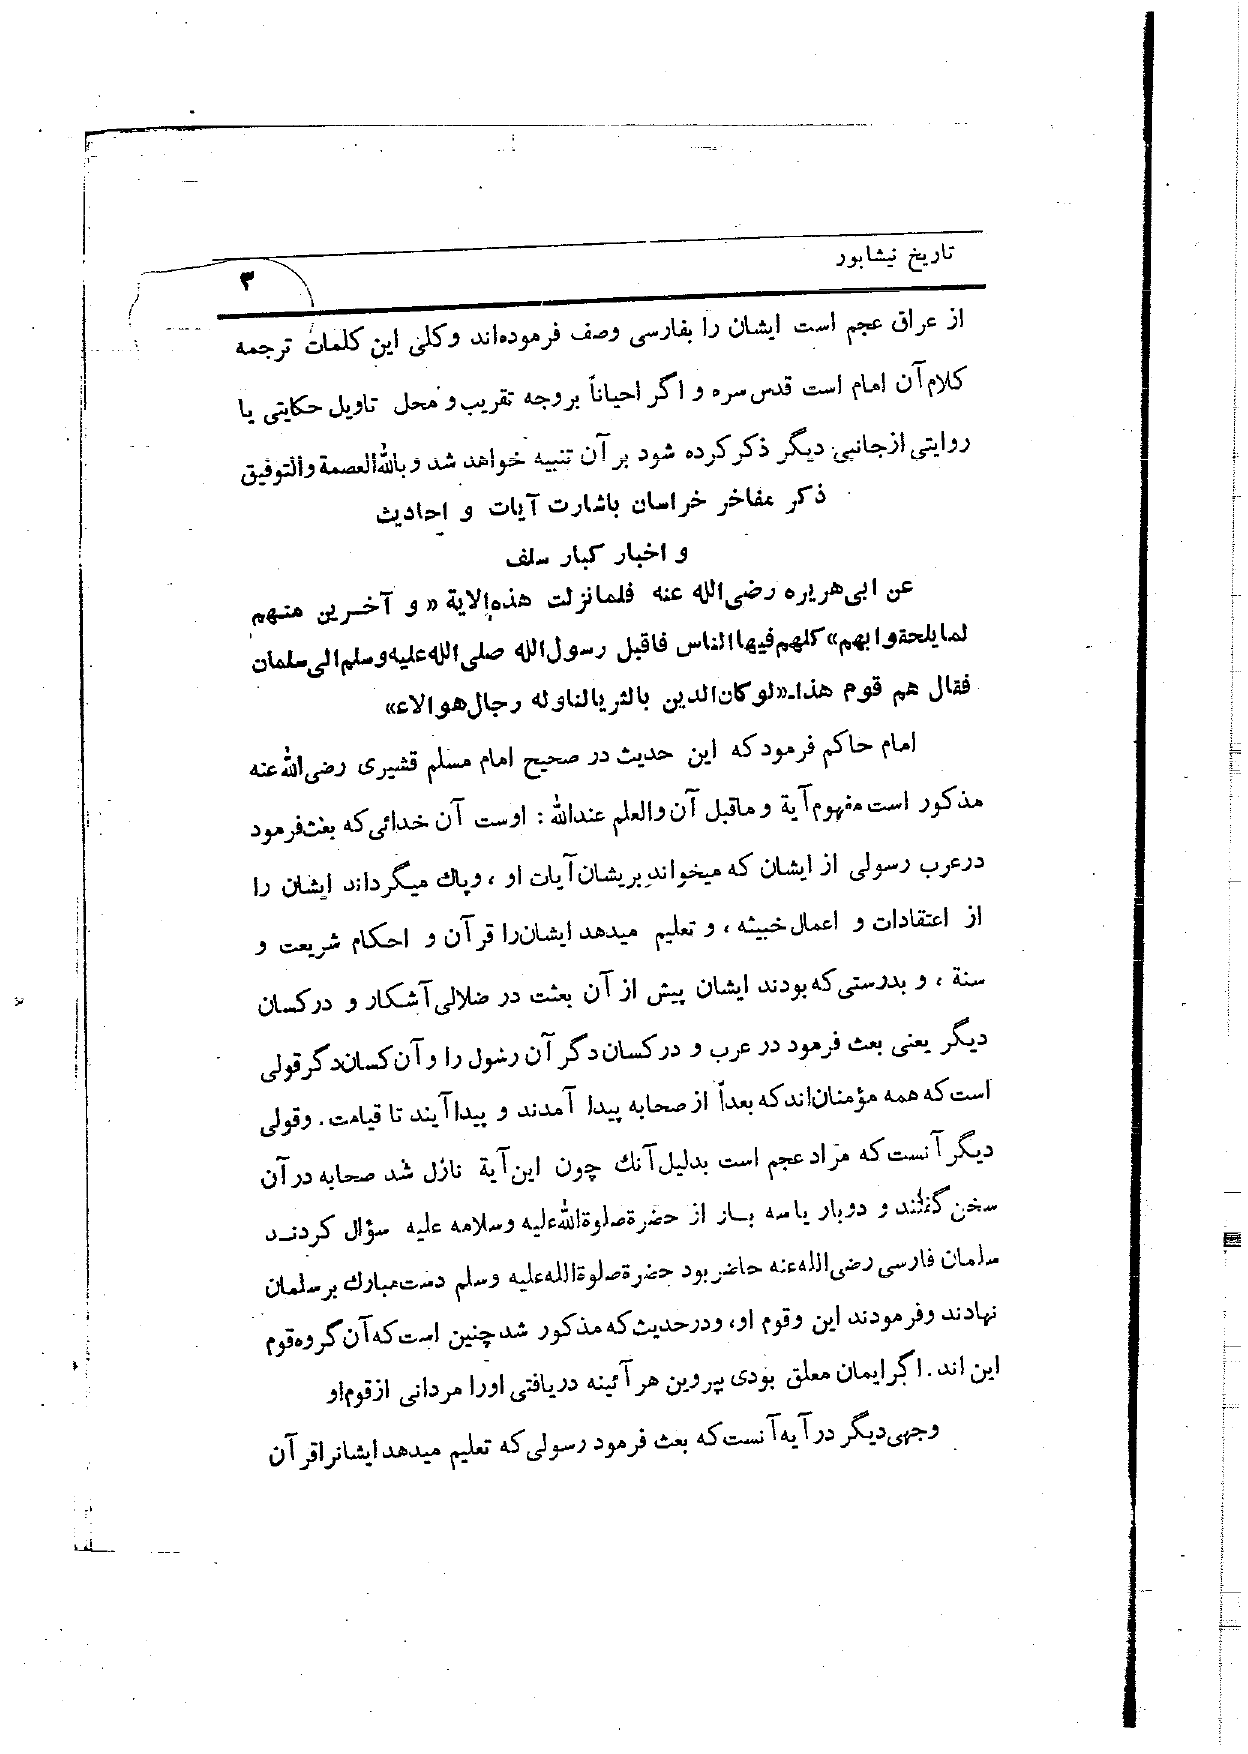 تاریخ نیشابور
۳
از عراق عجم است ایشان را بفارسی وصف فرموده‌اند وکلی این کلمات ترجمه
کلام آن امام است قدس سره و اگر احیاناً بروجه تقریب و محل تاویل حکایتی یا
روایتی از جانبی دیگر ذکر کرده شود بر آن تنبیه خواهد شد و بالله العصمة والتوفیق
ذکر مفاخر خراسان باشارت آیات و احادیث
و اخبار کبار سلف
عن ابی هریره رضی الله عنه فلما نزلت هذه الایة « و آخرین منهم
لما یلحقوا بهم» کلهم فیها الناس فاقبل رسول الله صلی الله علیه وسلم الی سلمان
فقال هم قوم هذا-«لو کان الدین بالثریا لناوله رجال هوالاء»
امام حاکم فرمود که این حدیث در صحیح امام مسلم قشیری رضی الله عنه
مذکور است مفهوم آیة و ماقبل آن والعلم عندالله : اوست آن خدائی که بعث فرمود
در عرب رسولی از ایشان که میخواند بریشان آیات او ، و پاك میگرداند ایشان را
از اعتقادات و اعمال خبیثه ، و تعلیم میدهد ایشان را قرآن و احکام شریعت و
سنة ، و بدرستی که بودند ایشان پیش از آن بعثت در ضلالی آشکار و در کسان
دیگر یعنی بعث فرمود در عرب و در کسان دگر آن رسول را و آن کسان دگر قولی
است که همه مؤمنان‌اند که بعداً از صحابه پیدا آمدند و پیدا آیند تا قیامت. وقولی
دیگر آنست که مراد عجم است بدلیل آنك چون این آیة نازل شد صحابه در آن
سخن گفتند و دوبار یا سه بار از حضرة صلوة الله علیه وسلامه علیه سؤال کردند
سلمان فارسی رضی الله عنه حاضر بود حضرة صلوة الله علیه وسلم دست مبارك بر سلمان
نهادند و فرمودند این وقوم او، ودر حدیث که مذکور شد چنین است که آن گروه قوم
این اند. اگر ایمان معلق بودی بپروین هر آئینه دریافتی او را مردانی از قوم او
وجهی دیگر در آیه آنست که بعث فرمود رسولی که تعلیم میدهد ایشانرا قرآن